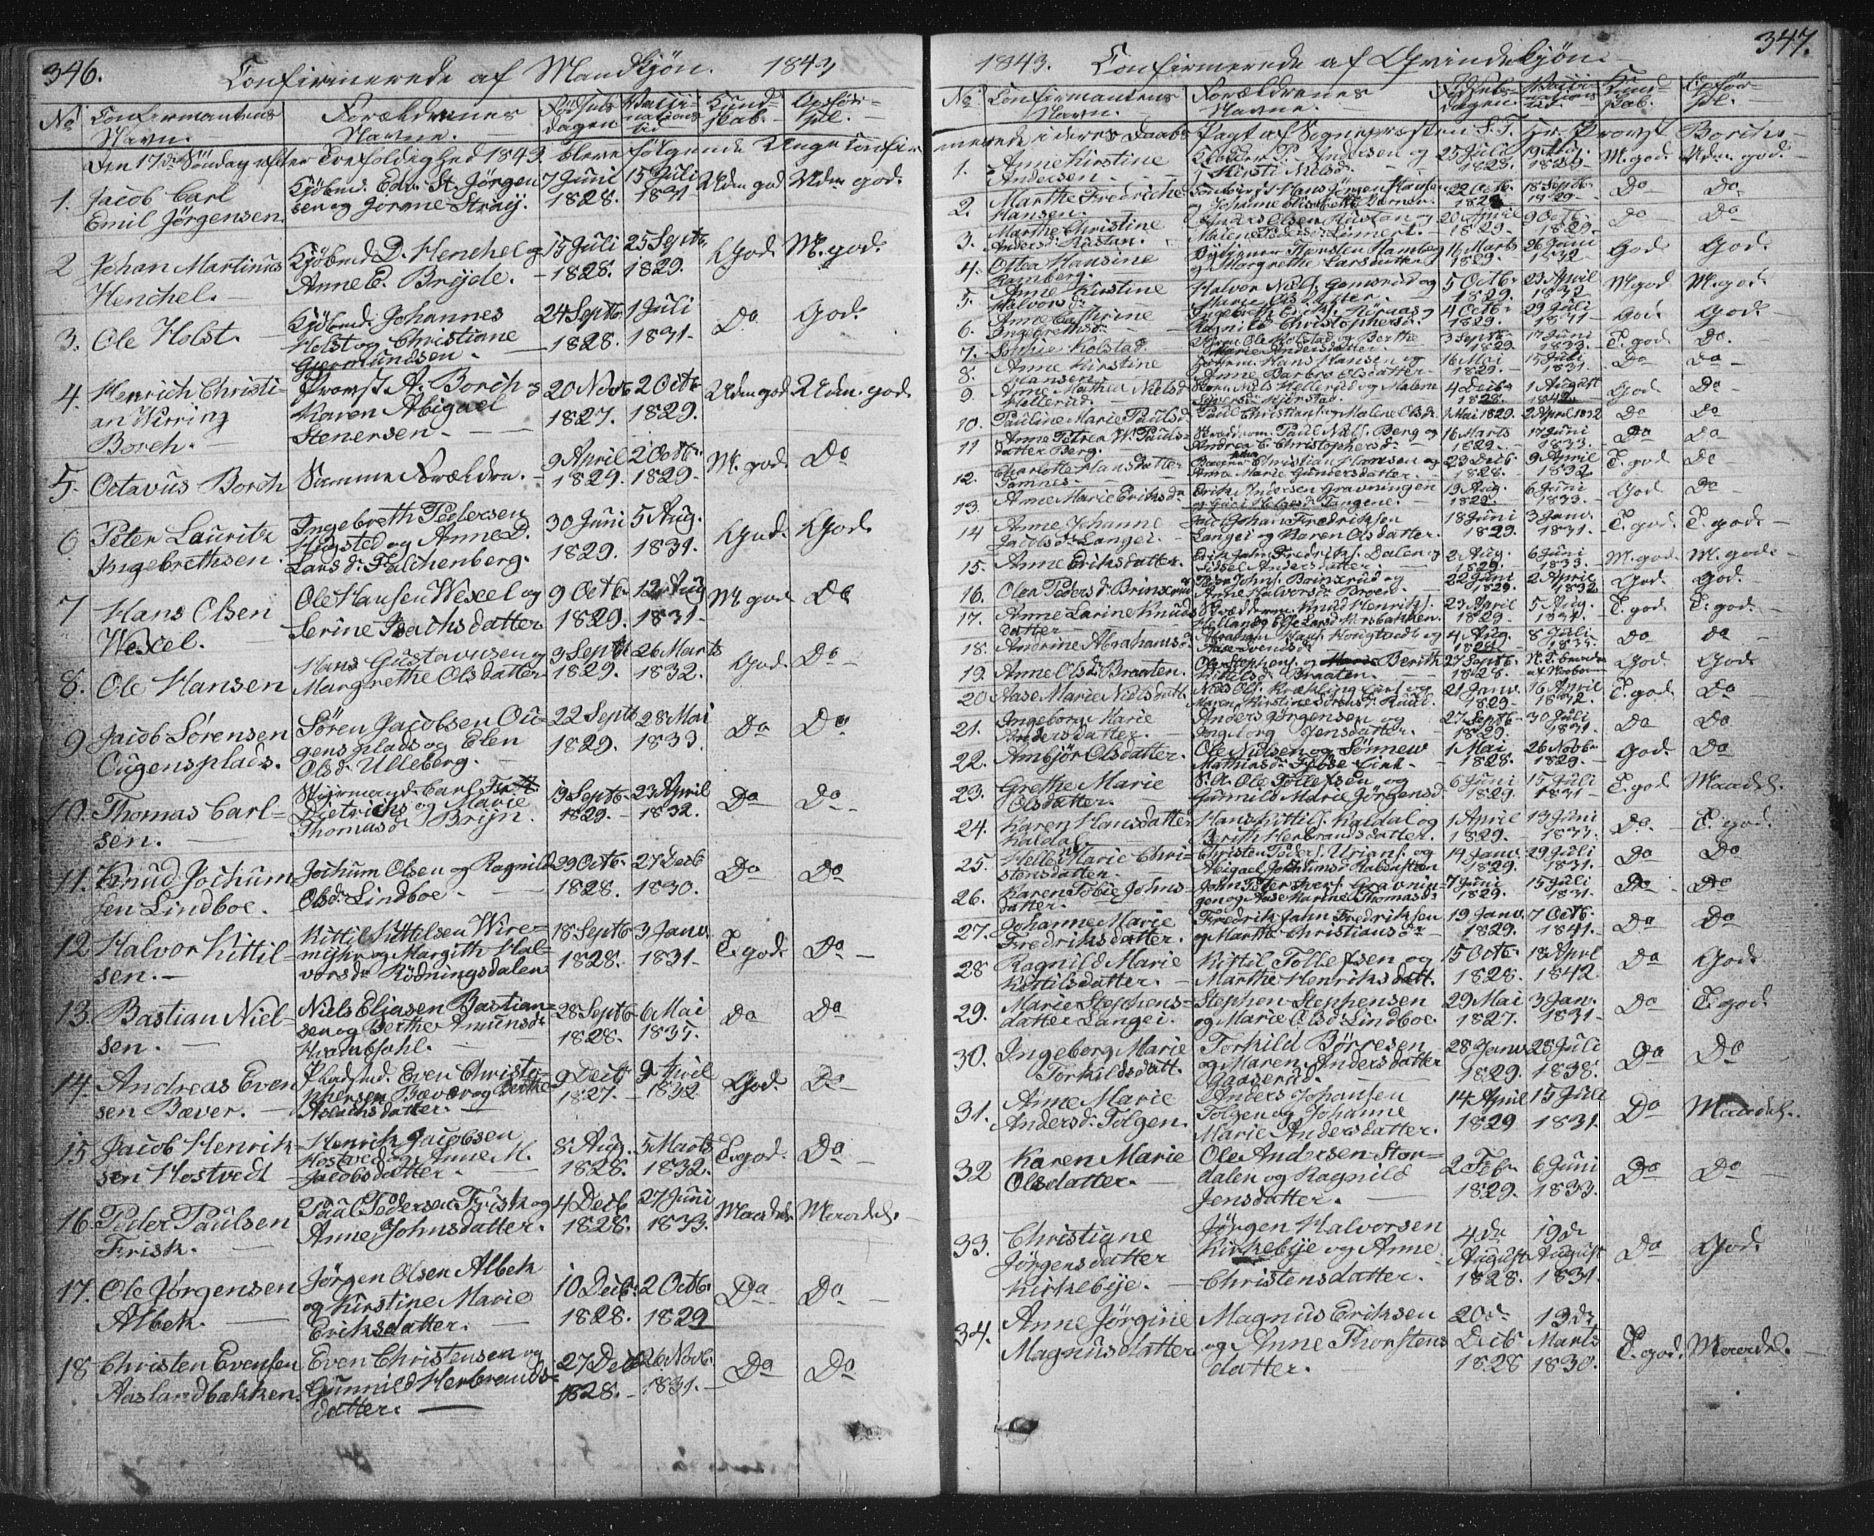 346.
Confirmerede af Mandkjøn. 1843
No Confirmantens Navn. Forældrenes Navne. Fødsels dagen Vacci- nations tid Kund- skab. Opføri- sel.
Den 17de Søndag efter Trefoldighed 1843 bleve følgende Unge confir
1. Jacob Carl Emil Jørgensen Kjøbmd. Edv. St. Jørgen sen og Jorine 7 Juni 1828. 15 Juli 1831 Udm god Udm god.
2 Johan Martinus Henchel. Kjøbmd D. Henchel og Anne E. Brijde. 15 Juli 1828. 25 Septr. 1829. God M. god.
3. Ole Holst. Kjøbmd Johannes Holst og Christiane Gjermundsen 24 Septb 1828. 1 Juli 1831. Do God.
4. Henrich Christi- an Wirring Borch. Provst A. Borch og Maren Abigael Stenersen. 20 Novb 1827. 2 Octb. 1829. Udm god Udm. god.
5. Octavus Borch Samme Forældre. 9 April 1829. 2 Octb. 1829. M. god Do
6 Peter Lauritz Ingebrethsen. Ingebreth Pedersen og Anne D. Larsdr. Falchenberg. 30 Juni 1829. 5 Aug. 1831. God. God.
7 Hans Olsen Wexel. Ole Hansen Wexel og Serine Isachsdatter 9 Octb. 1829. 12 Aug 1831 M. god Do
8. Ole Hansen Hans Gustavusen og Margrethe Olsdatter 9 Septb 1829. 26 Marts 1832. God. Do
9 Jacob Sørensen Ougensplads. Søren Jacobsen Ou- gensplads og Elen Olsd. Ulleberg. 22 Septb 1829. 28 Mai 1833. Do Do
10. Thomas Carl- sen. Carl Dietrichs og Marie Thomasdr Brijn. 19 Septb. 1829. 23 April 1832. Do Do
11. Knud Jochum sen Lindboe. Jochum Olsen og Ragnild Olsd. Lindboe 29 Octb. 1828. 27 Decb 1830. Do Do
12 Halvor Kittil- sen. Kittil Kittelsen Wire- og Margith Hal- vorsdr Rødningsdalen 18 Septb 1828. 3 Janv. 1831. T. god. Do
13. Bastian Niel- sen. Niels Eliasen Bastian- sen og Berthe 28 Septb 1828. 6 Mai 1835. Do Do
14. Andreas Even sen Bæver. Pladsmd. Even Christo- phersen Bæver og Berthe Aslachsdatter. 9 Decb 1827. 9 April 1832 God. Do
15 Jacob Henrik- sen Hostvedt Henrik Jacobsen Hostved og Anne M. Jacobsdatter. 8 Aug. 1828. 5 Marts 1832. T. god. Do
16. Peder Paulsen Frisk. Paul Pedersen Frisk og Anne Johnsdatter. 4 Decb 1828. 27 Juni 1833. Maadel. Maadel.
17. Ole Jørgensen Albek. Jørgen Olsen Albek og Kirstine Marie Eriksdatter. 10 Decb. 1828. 2 Octb. 1829 Do Do
18 Christen Evensen Aaslandbakken. Even Christensen og Gunnild Herbrands- datter. 27 Decb 1828. 26 Novb. 1831. Do Do
347.
1843. Confirmerede af Qvindekjøn.
No Confirmantens Navn. Forældrenes Navne. Fødsels dagen. Vacci- nations tid Kund- skab. Opfør- sel.
merede i deres Daabs Pagt af Sognepræsten S. T. Hr. Provst Borch.
1. Anne Kirstine Andersen. P. Andersen og Kirsti Nielsd. 25 Juli 1828. 19 Aug. 1829 M. god. Udm. god.
2. Marthe Fredrikke Hansen. Hans Jørgen Hansen og Johanne Elisabeth Werner. 22 Octb. 1828. 18 Septb. 1829. Do Do
3. Marthe Christine Andersd. Rustan. Anders Olsen Rustan og Malene 20 April 1829. 9 Octb. 1829. Do Do
4. Ottea Hansine Ramberg. Ramberg og Margrethe Larsdatter. 16 Marts 1829. 26 Juni 1832. God God.
5. Anne Kirstine Halvorsd. Halvor Niels. Gomsrud og Marie Olsdatter. 5 Octb. 1829. 23 April 1832. M. god M. god.
6. Anne Cathrine Ingebrethsd. Ingebreth Eriks. og Ragnild Christophersd. 4 Octb. 1829. 29 Juli 1831. God God.
7. Sophie Kolstad. Ole Kolstad og Berthe Marie Andersdatter. 3 Septb. 1829. 17 Juni 1833. T. god. Do
8. Anne Kirstine Hansen. Hans Hansen og Anne Barbro Olsdatter. 16 Mai 1829. 15 Juli 1831. Do Do
9. Anne Mathea Nielsd. Hellerud. Niels Hellerud og Malene 4 Decb. 1828. 1 August 1842. God Do
10. Pauline Marie Paulsd. Paul Christians. og Malene Olsd. 1 Mai 1829. 2 April 1832 Do Do
11 Anne Petrea W. Pauls- datter Berg. Paul Niels. Berg og Andrea C. Christophersd. 16 Marts 1829. 17 Juni 1833. Do Do
12. Charlotte Hansdatter Christian Hansen og Anne Marie Gundersdatter. 23 Decb 1828. 9 April 1832 T. god Do
13. Anne Marie Eriksdr. Erik Andersen Gravningen 19 Aug. 1829. 6 Juni 1833. God Do
14 Anne Johanne Jacobsdr Langei. Jacob Johan Fredriksen Langei og Karen Olsdatter. 18 Juni 1829. 3 Janv. 1831. T. god. T. god.
15. Anne Eriksdatter. Erik Jahn Fredriks. Dalen og Sissel Andersdatter. 2 Aug. 1829. 6 Juni 1833. M. god. M. god.
16. Olea Pedersd. Peder Johns. og Anne Halvorsd. 22 Juni 1829. 2 April 1832 God. God.
17. Anne Larine Knuds datter Knud Henriks. 23 April 1829. 5 Aug. 1831. T. god. T. god.
18. Andrine Abrahamsd. Abraham Hans. og 4 Aug. 1828. 8 Juli 1833. Do Do
19. Anne Olsd. Braaten. Ole Stephens. og Berith Kittelsd. Braaten. 27 Septb. 1828. God God
20 Aase Marie Nielsdatt. Niels Ols. og Maren Kirstine 21 Janv. 1829. 16 April 1832. T. god Do
21. Ingeborg Marie Andersdatter. Anders Jørgensen og Ingeborg Jensdatter. 27 Septb. 1829. 30 Juli 1831. Do Do
22. Ambjør Olsdatter. Ole Nielsen og Sønnev Mathisd. 1 Mai 1828. 26 Novb. 1829. God Do
23. Grethe Marie Olsdatter. Ole Tollefsen og Gunnild Marie Jørgensd. 6 Juni 1829. 15 Juli 1831. T. god Maadel.
24. Karen Hansdatter Kaldal. Hans Kittils. Kaldal og Berith Herbrandsdatter. 1 April 1829. 13 Juni 1833. Do. T. god.
25. Helle Marie Chri- stensdatter. Christen Peders. og Abigael Jochumsd. 14 Janv. 1829. 29 Juli 1831. Do Do
26. Karen Tobie Johns- datter. John Peter Gravnin- gen og Aase Karine Thomasd. 7 Juni 1829. 15 Juli 1831. Do Do
27. Johanne Marie Fredriksdatter. Fredrik Jahn Fredriksen og Marthe Christiansdr. 19 Janv. 1829. 7 Octb. 1841. Do Do
28 Ragnild Marie Kittilsdatter. Kittil Tollefsen og Marthe Henriksdatt. 15 Octb. 1828. 18 April 1842. Do God
29. Marie Stephens- datter Langei. Stephen Stephensen og Marie Olsd. Lindboe. 29 Mai 1827. 3 Jan. 1831. Do T. god
30. Ingeborg Marie Torkildsdatt. Torkild Børresen og Maren Andersdatter Gaaserud. 28 Janv. 1829. 28 Juli 1838. Do Do
31. Anne Marie Andersd. Folgen. Anders Johansen Folgen og Johanne Marie Andersdatter. 14 April 1829 15 Juli 1831. Do Maadel.
32 Karen Marie Olsdatter. Ole Andersen Stor- dalen og Ragnild Jensdatter. 2 Febr. 1829. 6 Juni 1833. Do Do
33. Christiane Jørgensdatter Kirkebije. Jørgen Halvorsen Kirkebije og Anne Christensdatter. 4de August 1828. 19de August 1831. Do God.
34. Anne Jørgine Magnusdatter Magnus Eriksen og Anne Thorstens datter. 20de Decb 1828 13de Marts 1830. T. god. Maadel.